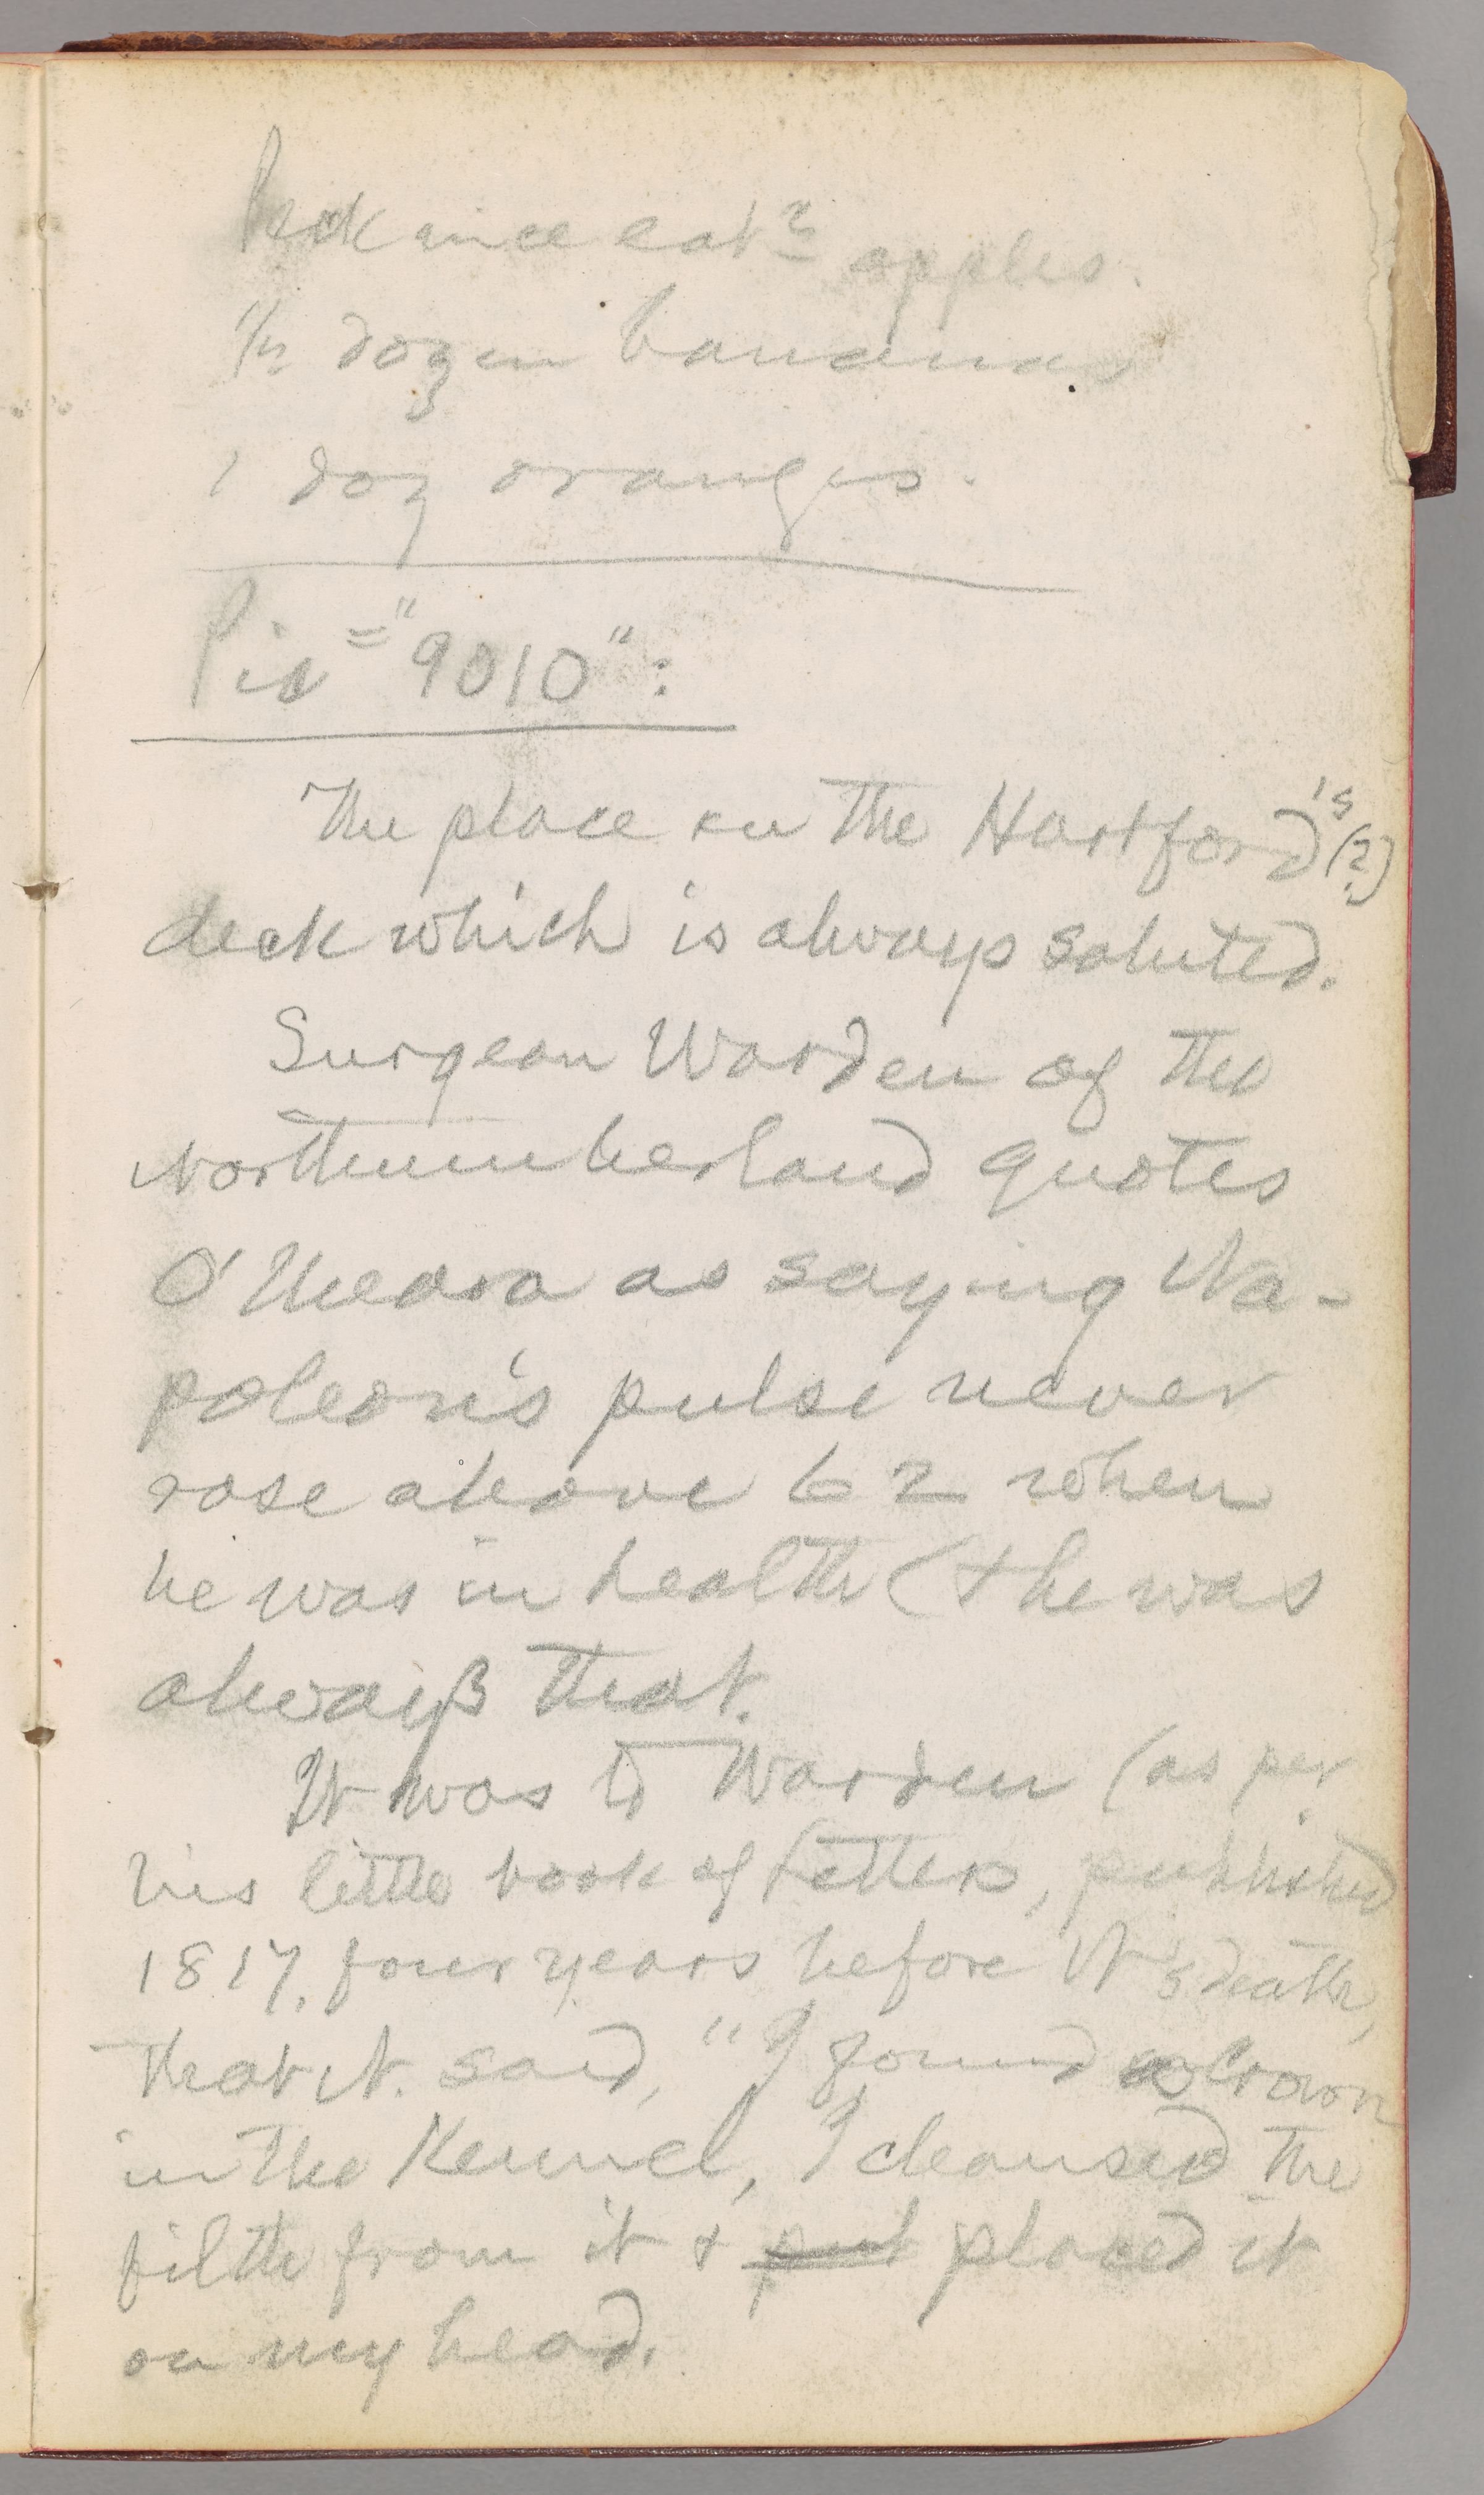 Peck nice eat<sup>g</sup> apples.
1/2 dozen bananas
1 doz oranges.
Pix = "9010":
The place on the Hartford's (?)
deck which is always saluted.
Surgeon Warden of the
Northumberland quotes
O'Meara as saying Na-
poleon's pulse never
rose above 62 when
he was in health (& he was
always that.
It was to Warden (as per
his little book of Letters, published
1817, four years before N's death,
that N. said, "I found a Crown
in the Kennel, I cleansed the
filth from it & put placed it
on my head.